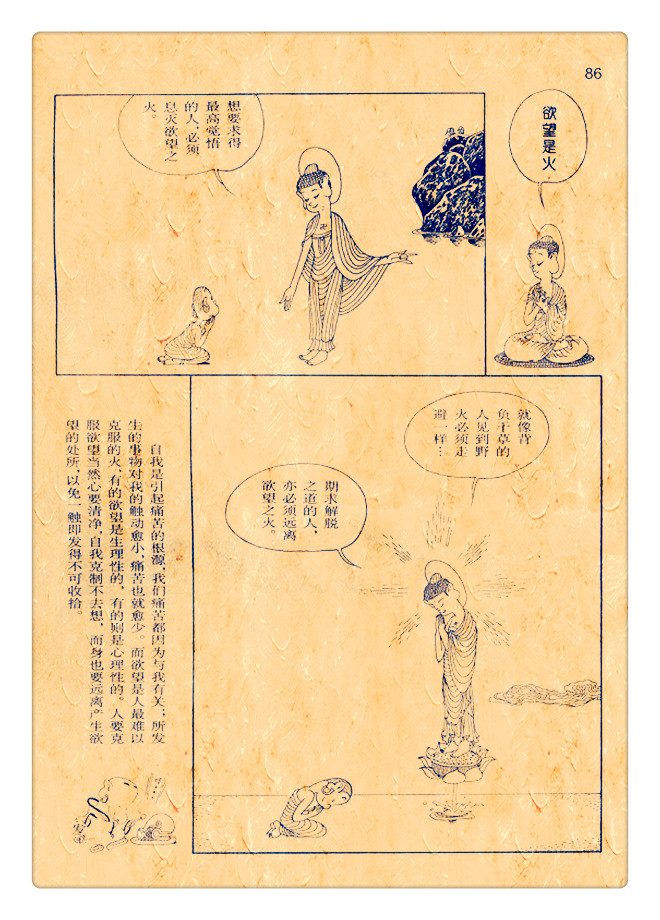 86
欲望是火
想要求得
最高觉悟
的人，必须
息灭欲望之
火。
就像背
负干草的
人见到野
火必须走
避一样…
期求解脱
之道的人，
亦必须远离
欲望之火。
自我是引起痛苦的根源，我们痛苦都因为与我有关；所发
生的事物对我的触动愈小，痛苦也就愈少。而欲望是人最难以
克服的火，有的欲望是生理性的，有的则是心理性的。人要克
服欲望当然心要清净，自我克制不去想，而身也要远离产生欲
望的处所，以免一触即发得不可收拾。